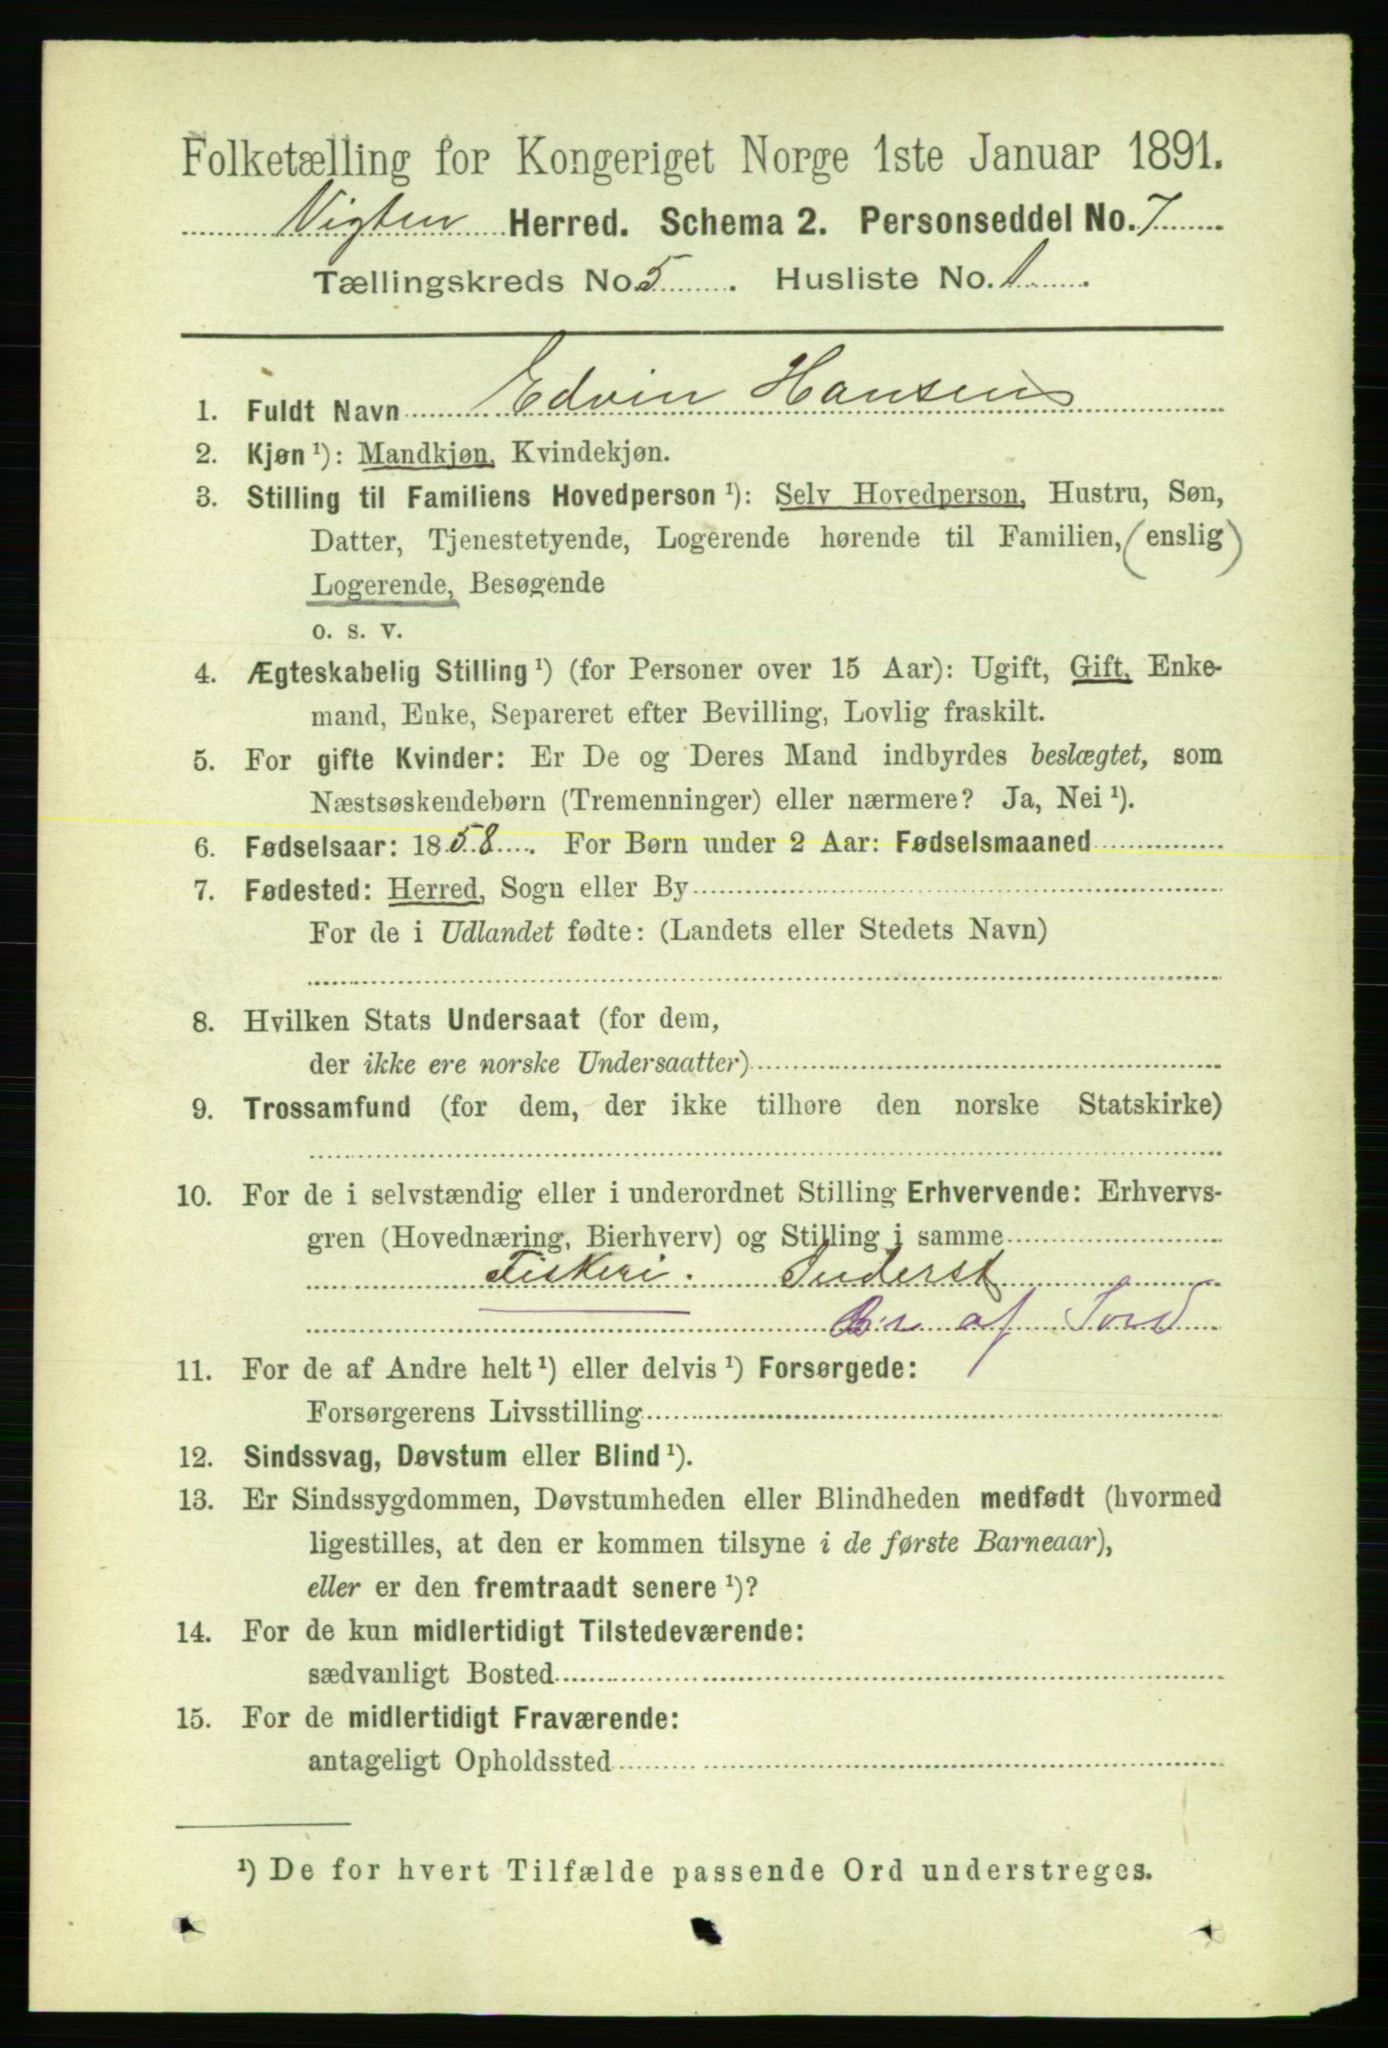 Folketælling for Kongeriget Norge 1ste Januar 1891.
Vigten Herred. Schema 2. Personseddel No. 7
Tællingskreds No. 5. Husliste No. 1.
1. Fuldt Navn Edvin Hansen
2. Kjøn ¹): Mandkjøn, Kvindekjøn.
3. Stilling til Familiens Hovedperson ¹): Selv Hovedperson, Hustru, Søn,
Datter, Tjenestetyende, Logerende hørende til Familien, (enslig)
Logerende, Besøgende
o. s. v.
4. Ægteskabelig Stilling ¹) (for Personer over 15 Aar): Ugift, Gift, Enke-
mand, Enke, Separeret efter Bevilling, Lovlig fraskilt.
5. For gifte Kvinder: Er De og Deres Mand indbyrdes beslægtet, som
Næstsøskendebørn (Tremenninger) eller nærmere? Ja, Nei ¹).
6. Fødselsaar: 1858. For Børn under 2 Aar: Fødselsmaaned
7. Fødested: Herred, Sogn eller By
For de i Udlandet fødte: (Landets eller Stedets Navn)
8. Hvilken Stats Undersaat (for dem,
der ikke ere norske Undersaatter)
9. Trossamfund (for dem, der ikke tilhøre den norske Statskirke)
10. For de i selvstændig eller i underordnet Stilling Erhvervende: Erhvervs-
gren (Hovednæring, Bierhverv) og Stilling i samme
Fiskeri. Inderst
af Jord
11. For de af Andre helt ¹) eller delvis ¹) Forsørgede:
Forsørgerens Livsstilling
12. Sindssvag, Døvstum eller Blind ¹).
13. Er Sindssygdommen, Døvstumheden eller Blindheden medfødt (hvormed
ligestilles, at den er kommen tilsyne i de første Barneaar),
eller er den fremtraadt senere ¹)?
14. For de kun midlertidigt Tilstedeværende:
sædvanligt Bosted
15. For de midlertidigt Fraværende:
antageligt Opholdssted
¹) De for hvert Tilfælde passende Ord understreges.